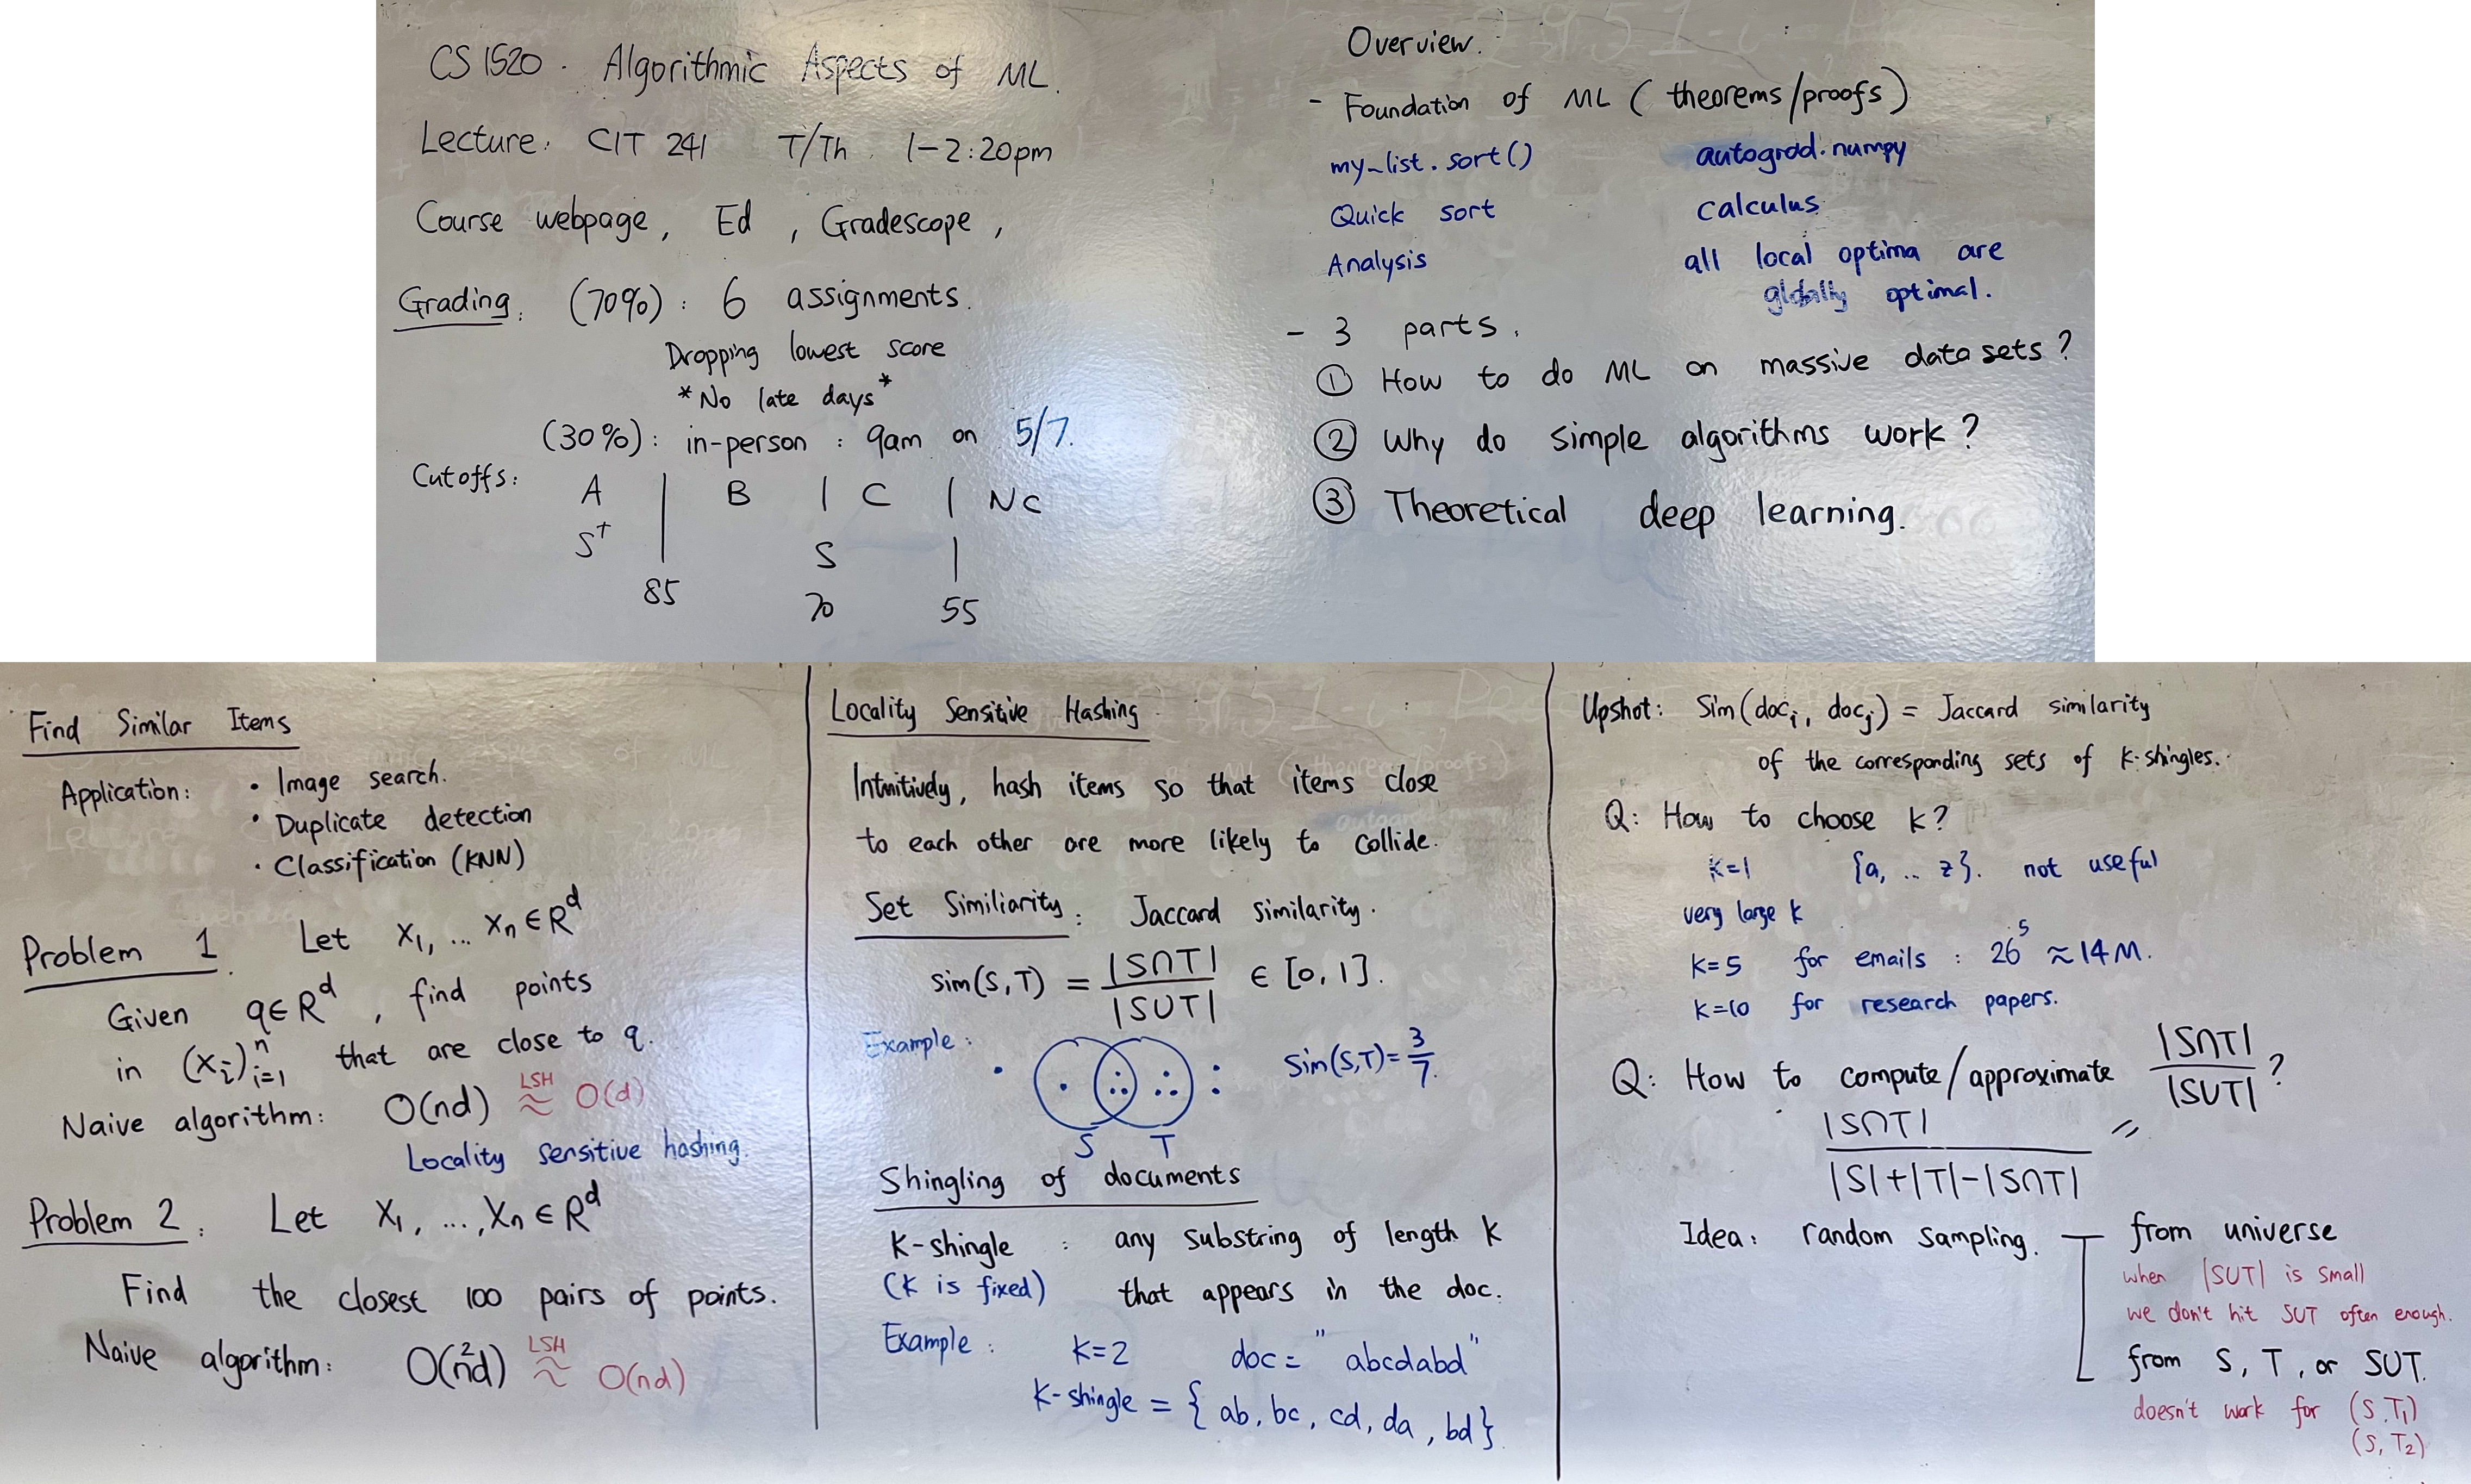 CS 1520. Algorithmic Aspects of ML.
Lecture: CIT 241 T/Th. 1-2:20pm
Course webpage, Ed, Gradescope,
Grading: (70%): 6 assignments.
Dropping lowest score
*No late days*
(30%): in-person: 9am on 5/7.
Cutoffs: A | B | C | NC
S+ S |
85 70 55
Overview.
- Foundation of ML (theorems/proofs)
my_list.sort() autograd.numpy
Quick sort calculus
Analysis all local optima are
globally optimal.
- 3 parts.
① How to do ML on massive datasets?
② Why do simple algorithms work?
③ Theoretical deep learning.
Find Similar Items
Application: • Image search.
• Duplicate detection
• Classification (KNN)
Problem 1. Let x₁, ... xₙ ∈ R^d
Given q ∈ R^d, find points
in (x_i)_{i=1}^n that are close to q.
Naive algorithm: O(nd) LSH ≈ O(d)
Locality sensitive hashing.
Problem 2. Let x₁, ..., xₙ ∈ R^d
Find the closest 100 pairs of points.
Naive algorithm: O(n²d) LSH ≈ O(nd)
Locality Sensitive Hashing
Intuitively, hash items so that items close
to each other are more likely to collide.
Set Similiarity: Jaccard similarity.
sim(S,T) = |S∩T| / |S∪T| ∈ [0,1].
Example: sim(S,T) = 3/7.
S T
Shingling of documents
K-shingle : any substring of length k
(k is fixed) that appears in the doc.
Example: k=2 doc = "abcdabd"
k-shingle = {ab, bc, cd, da, bd}
Upshot: Sim(doc_i, doc_j) = Jaccard similarity
of the corresponding sets of k-shingles.
Q: How to choose k?
k=1 {a, .. z}. not useful
very large k
k=5 for emails: 26⁵ ≈ 14M.
k=10 for research papers.
Q: How to compute/approximate |S∩T| / |S∪T| ?
|S∩T| / |S|+|T|-|S∩T| =
Idea: random sampling. from universe
when |S∪T| is small
we don't hit S∪T often enough.
from S, T, or S∪T.
doesn't work for (S,T₁)
(S,T₂)